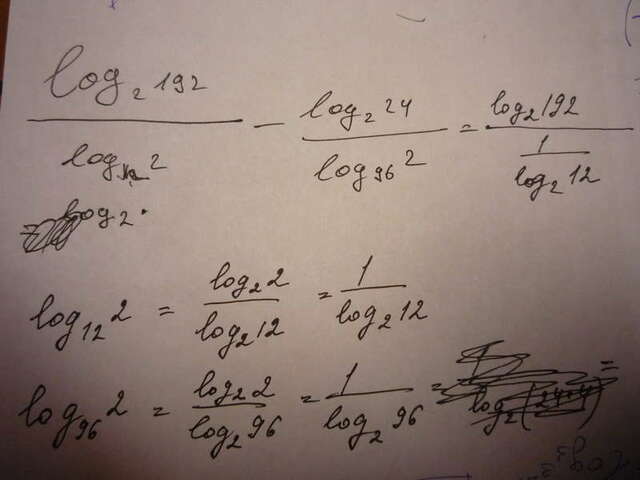 log₂ 192 / log₁₂ 2 − log₂ 24 / log₉₆ 2 = log₂ 192 / (1 / log₂ 12)
log₂
log₁₂ 2 = log₂ 2 / log₂ 12 = 1 / log₂ 12
log₉₆ 2 = log₂ 2 / log₂ 96 = 1 / log₂ 96 =